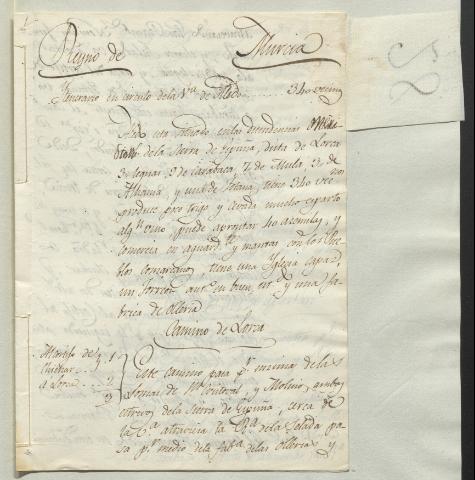 Reyno de Murcia
Ytinerario en circulo de la V.ª de Aledo 340 vecinos
Aledo esta situado en las decendencias
de la sierra de Espuña, dista de Lorca
3 leguas, 9 de Caravaca, 7 de Mula, 3 de
Alhama, y una de Totana, tiene 340 vecinos
produce poco trigo y cevada mucho esparto
alg.n vino, puede aprontar 40 acemilas, y
comercia en aguard.te y mantas con los Pue
blos comarcanos, tiene una Iglesia capaz
un Torreon ant.º en buen est.º y una fa
brica de olleria
Camino de Lorca
1
2
a Lorca 3
Este camino pasa p.r encima de las
Lomas de y Molino, ambos
estrivos de la sierra de Espuña, cerca de
la V.ª atraviesa la R.ª de la Zelada pa
sa p.r medio de la fab.ª de las Ollerias y